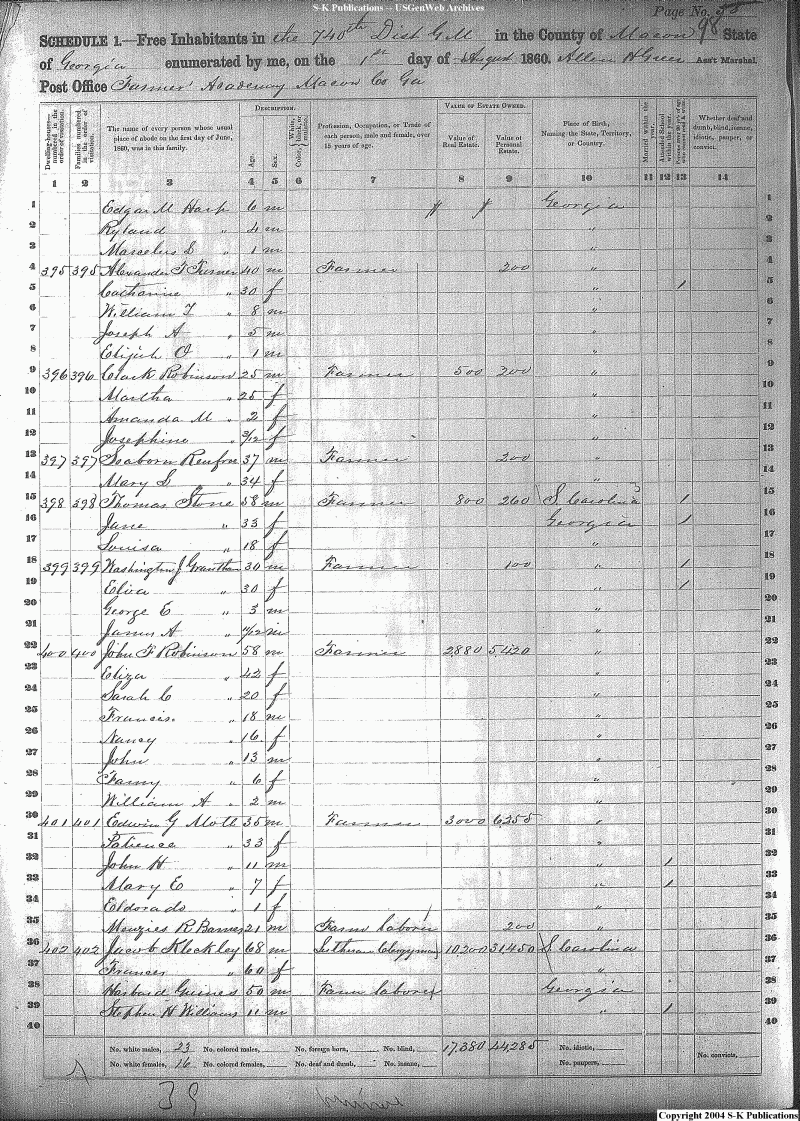 S-K Publications -- USGenWeb Archives
Page No. 55
98
SCHEDULE 1.—Free Inhabitants in the 740th Dist G.M in the County of Macon State
of Georgia enumerated by me, on the 1st day of August 1860. Allen H Greer Ass't Marshal
Post Office Farmers Academy Macon Co Ga
Dwelling-houses—numbered in the order of visitation.
Families numbered in the order of visitation.
The name of every person whose usual place of abode on the first day of June, 1860, was in this family.
DESCRIPTION.
Age.
Sex.
Color, White, black, or mulatto.
Profession, Occupation, or Trade of each person, male and female, over 15 years of age.
VALUE OF ESTATE OWNED.
Value of Real Estate.
Value of Personal Estate.
Place of Birth, Naming the State, Territory, or Country.
Married within the year.
Attended School within the year.
Whether deaf and dumb, blind, insane, idiotic, pauper, or convict.
1 2 3 4 5 6 7 8 9 10 11 12 13 14
1 Edgar M Harp 6 m Georgia 1
2 Ryland " 4 m " 2
3 Marcelus S " 1 m " 3
4 395 395 Alexander T Turner 40 m Farmer 200 " 4
5 Catharine " 30 f " 1 5
6 William T " 8 m " 6
7 Joseph A " 5 m " 7
8 Elijih O " 1 m " 8
9 396 396 Clark Robinson 25 m Farmer 500 200 " 9
10 Martha " 25 f " 10
11 Amanda M " 2 f " 11
12 Josephine " 3/12 f " 12
13 397 397 Seaborn Renfroe 37 m Farmer 200 " 13
14 Mary S " 34 f " 14
15 398 398 Thomas Stone 58 m Farmer 800 260 S Carolina 1 15
16 Jane " 33 f Georgia 1 16
17 Louisa " 18 f " 17
18 399 399 Washington J Grantham 30 m Farmer 100 " 1 18
19 Eliva " 30 f " 1 19
20 George E " 3 m " 20
21 James A " /12 m " 21
22 400 400 John F Robinson 58 m Farmer 2880 5420 " 22
23 Eliza " 42 f " 23
24 Sarah C " 20 f " 24
25 Francis " 18 m " 25
26 Nancy " 16 f " 26
27 John " 13 m " 27
28 Fanny " 6 f " 28
29 William A " 2 m " 29
30 401 401 Edwin G Mott 35 m Farmer 3000 6255 " 30
31 Patience " 33 f " 31
32 John H " 11 m " 1 32
33 Mary E " 7 f " 1 33
34 Eldorado " 1 f " 34
35 Menzies R Barnes 21 m Farm laborer 200 " 35
36 402 402 Jacob Kleckley 68 m Luthran Clergyman 10,200 31,450 S Carolina 36
37 Frances " 60 f " 37
38 Guines 50 m Farm laborer Georgia 38
39 Stephen H Williams 11 m " 1 39
40 40
No. white males, 23 No. colored males, No. foreign born, No. blind, 17,380 44,285 No. idiotic, No. convicts,
No. white females, 16 No. colored females, No. deaf and dumb, No. insane, No. paupers,
39
Copyright 2004 S-K Publications